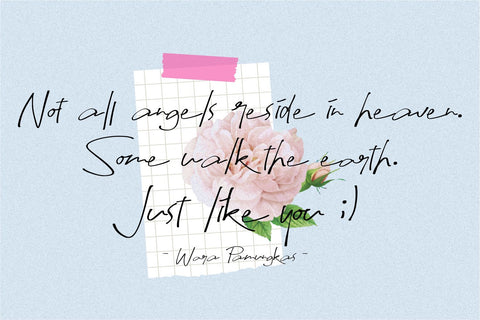 Not all angels reside in heaven.
Some walk the earth.
Just like you ;)
- Wara Pamungkas -